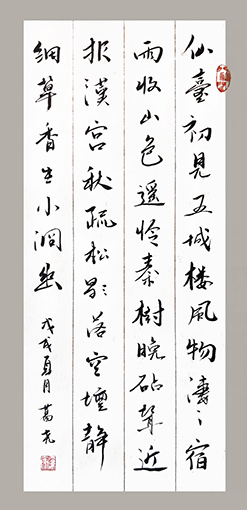 仙臺初見五城楼風物淒〻宿
雨收山色遥怜秦樹晚砧聲近
报漢宫秋疏松影落空壇静
細草香生小洞幽 戊戌夏月葛